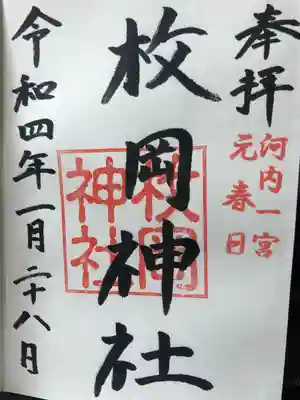 奉拝
河内一宮
元春日
枚岡神社
枚岡神社
令和四年一月二十八日